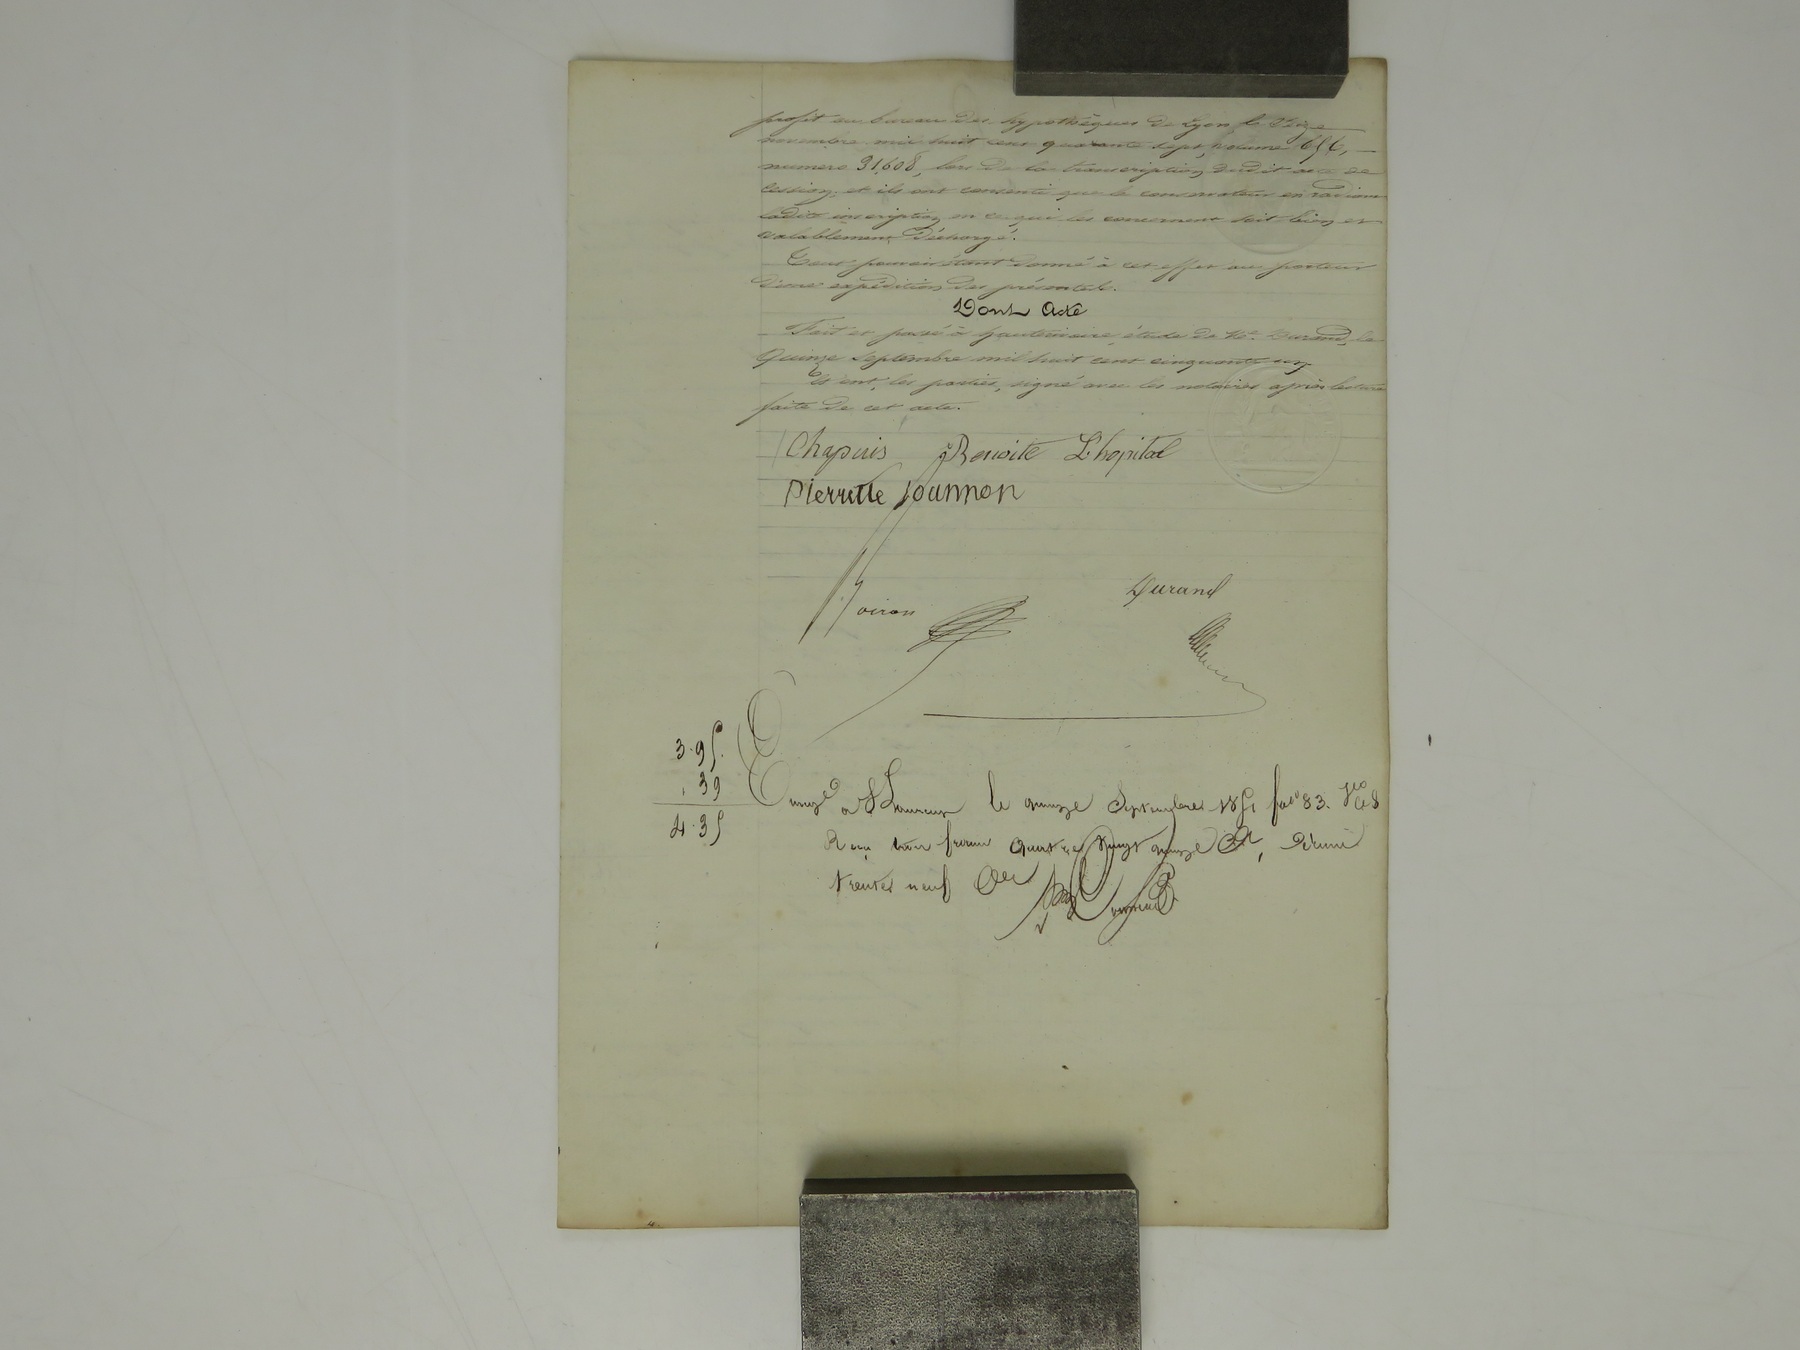 profit au bureau des hypothèques de Lyon le seize
novembre mil huit cent quarante sept, volume
numéro 31,608, lors de la transcription dudit acte de
cession. et ils ont consenti que le conservateur en radiant
ladite inscription en ce qui les concernent soit bien et
valablement déchargé.
Tout pouvoir étant donné à cet effet au porteur
d'une expédition des présentes.
Dont Acte
Fait et passé à hauterivoire, étude de Me. Durand, le
Quinze Septembre mil huit cent cinquante un
Et ont, les parties, signé avec les notaires après lecture
faite de cet acte.
Chapuis Benoite L'hopital
Pierrette Joannon
Voiron Durand
3.95.
.39
4.35
le quinze Septembre 1851 fo 83. Vo
Reçu trois francs quatre vingt quinze, Décime
trente neuf